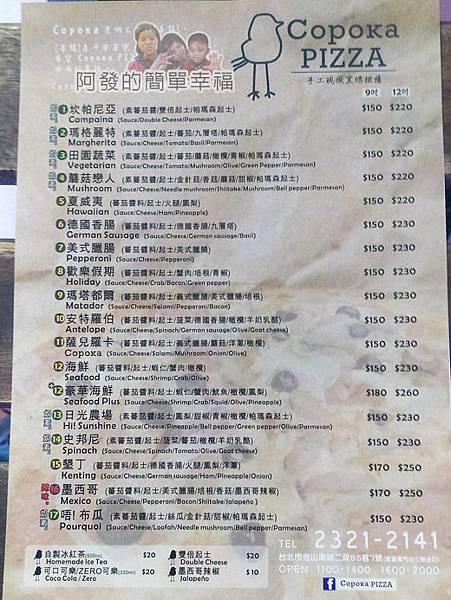 Copoka
PIZZA
手工現做窯烤披薩
阿發的簡單幸福
9吋 12吋
素食 1 坎帕尼亞 (素蕃茄醬/雙倍起士/帕瑪森起士) $150 $220
Campaina (Sauce/Double Cheese/Parmesan)
素食 2 瑪格麗特 (素蕃茄醬/起士/蕃茄/九層塔/帕瑪森起士) $150 $220
Margherita (Sauce/Cheese/Tomato/Basil/Parmesan)
素食 3 田園蔬菜 (素蕃茄醬/起士/蕃茄/蘑菇/橄欖/青椒/帕瑪森起士) $150 $220
Vegetarian (Sauce/Cheese/Tomato/Mushroom/Olive/Green Pepper/Parmesan)
素食 4 蘑菇戀人 (素蕃茄醬/起士/金針菇/香菇/蘑菇/甜椒/帕瑪森起士) $150 $220
Mushroom (Sauce/Cheese/Needle mushroom/Shiitake/Mushroom/Bell pepper/Parmesan)
5 夏威夷 (蕃茄醬料/起士/火腿/鳳梨) $150 $220
Hawaiian (Sauce/Cheese/Ham/Pineapple)
6 德國香腸 (蕃茄醬料/起士/德國香腸/九層塔) $150 $230
German Sausage (Sauce/Cheese/German sausage/Basil)
7 美式臘腸 (蕃茄醬料/起士/美式臘腸) $150 $230
Pepperoni (Sauce/Cheese/Pepperoni)
8 歡樂假期 (蕃茄醬料/起士/蟹肉/培根/青椒) $150 $230
Holiday (Sauce/Cheese/Crab/Bacon/Green pepper)
9 瑪塔都爾 (蕃茄醬料/起士/義式臘腸/美式臘腸/培根) $150 $230
Matador (Sauce/Cheese/Salami/Pepperoni/Bacon)
10 安特羅伯 (蕃茄醬料/起士/菠菜/德國香腸/橄欖/羊奶乳酪) $150 $230
Antelope (Sauce/Cheese/Spinach/German sausage/Olive/Goat cheese)
11 薩兒羅卡 (蕃茄醬料/起士/義式臘腸/蘑菇/洋蔥/橄欖) $150 $230
Copoka (Sauce/Cheese/Salami/Mushroom/Onion/Olive)
12 海鮮 (蕃茄醬料/起士/蝦仁/蟹肉/橄欖) $150 $230
Seafood (Sauce/Cheese/Shrimp/Crab/Olive)
+12 豪華海鮮 (蕃茄醬料/起士/蝦仁/蟹肉/魷魚/橄欖/鳳梨) $180 $260
Seafood Plus (Sauce/Cheese/Shrimp/Crab/Squid/Olive/Pineapple)
素食 13 日光農場 (素蕃茄醬/起士/鳳梨/甜椒/青椒/橄欖/帕瑪森起士) $150 $230
Hi! Sunshine (Sauce/Cheese/Pineapple/Bell pepper/Green pepper/Olive/Parmesan)
素食 14 史邦尼 (素蕃茄醬/起士/菠菜/蕃茄/橄欖/羊奶乳酪) $150 $230
Spinach (Sauce/Cheese/Spinach/Tomato/Olive/Goat cheese)
15 墾丁 (蕃茄醬料/起士/德國香腸/火腿/鳳梨/洋蔥) $170 $250
Kenting (Sauce/Cheese/German sausage/Ham/Pineapple/Onion)
辣味 16 墨西哥 (蕃茄醬料/起士/美式臘腸/培根/香菇/墨西哥辣椒) $170 $250
Mexico (Sauce/Cheese/Pepperoni/Bacon/Shiitake/Jalapeño)
素食 17 唔! 布瓜 (素蕃茄醬/起士/絲瓜/金針菇/甜椒/帕瑪森起士) $150 $230
Pourquoi (Sauce/Cheese/Loofah/Needle mushroom/Bell pepper/Parmesan)
自製冰紅茶(500ml) $20 雙倍起士 $20
Homemade Ice Tea Double Cheese
可口可樂/ZERO可樂(330ml) $20 墨西哥辣椒 $10
Coca Cola / Zero Jalapeño
TEL 2321-2141
台北市金山南路二段85巷7號
OPEN 1100-1400 1600-2000
Copoka PIZZA